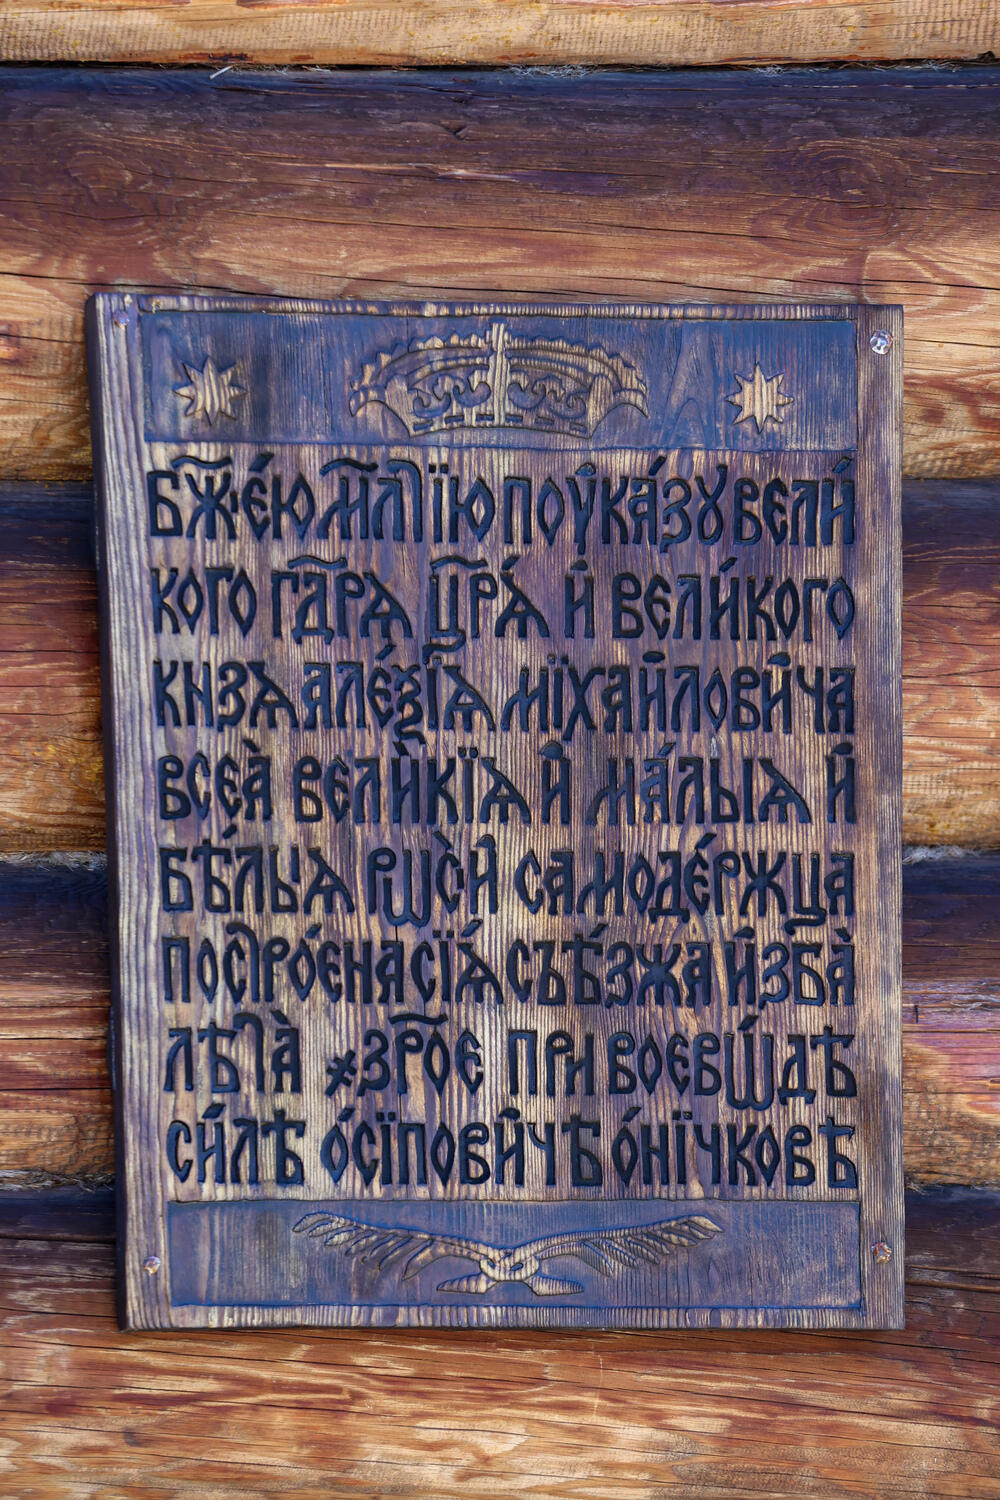 Бж҃їе́ю мл҃тїю по ᲂу҆ка́зꙋ вели́
кого гдⷭ҇рѧ цр҃ѧ́ и҆ вели́кого
кнзѧ алеѯі́ѧ мїхаи҆лови҆ча
всеѧ̀ вели҆кїѧ и҆ ма́лыѧ и҆
бѣ́лыѧ рѡсі̀и҆ самоде́ржца
построе́на сїѧ́ съѣ́зжа и҆зба̀
лѣта̀ ҂зро҃е при воевѡ́дѣ
си́лѣ о́сїпови҆чѣ о́нїчковѣ